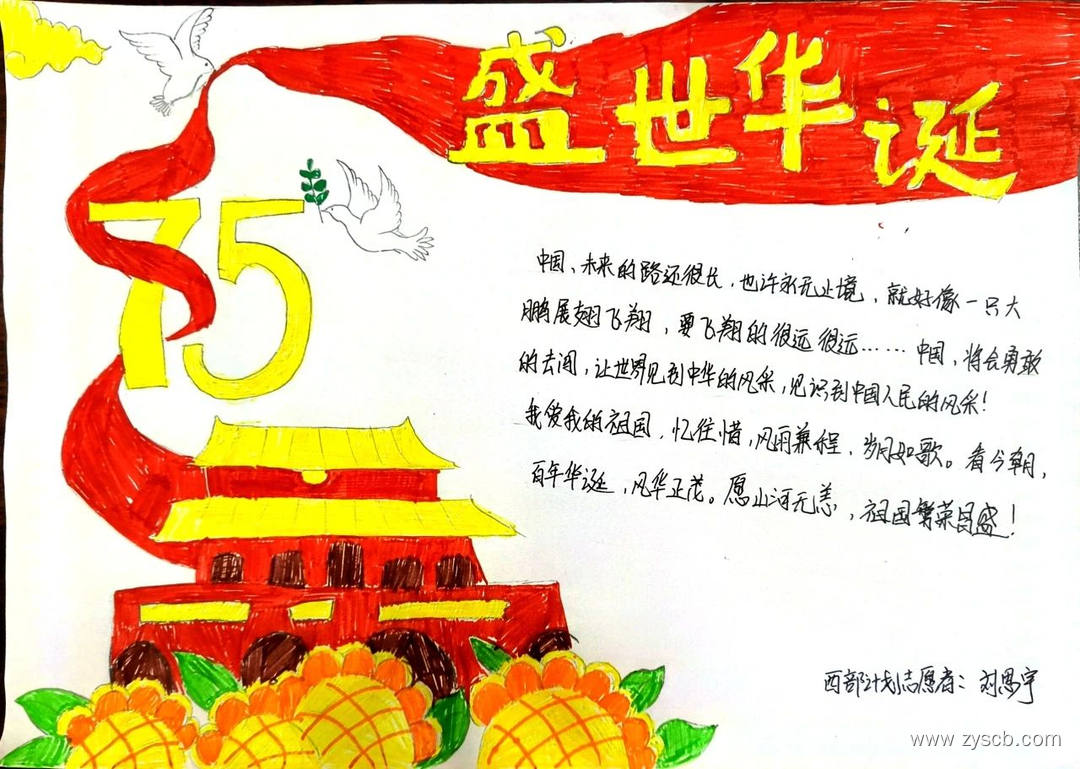 盛世华诞
75
中国、未来的路还很长，也许永无止境，就好像一只大
鹏展翅飞翔，要飞翔的很远很远……中国，将会勇敢
的去闯，让世界见到中华的风采，见识到中国人民的风采！
我爱我的祖国，忆往惜，风雨兼程，岁月如歌。看今朝，
百年华诞，风华正茂。愿山河无恙，祖国繁荣昌盛！
西部计划志愿者：刘思宇
www.zyscb.com